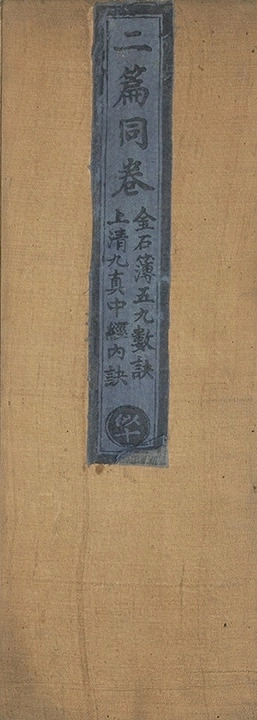 二篇同卷
金石簿五九數訣
上清九真中經內訣